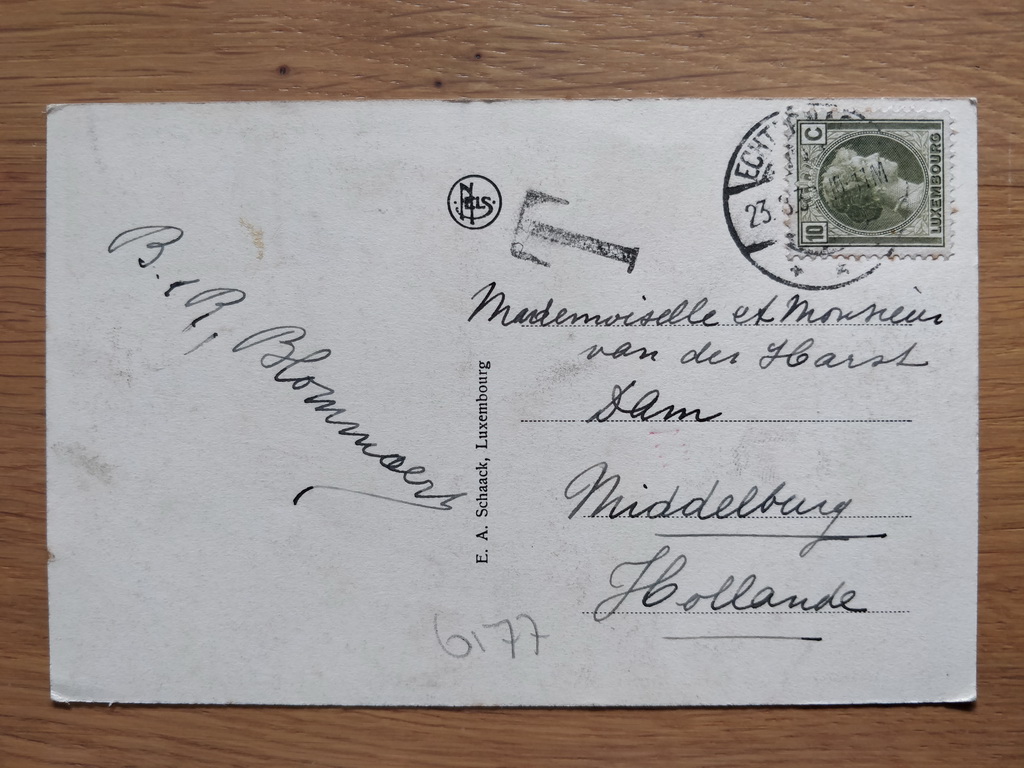 B. R, Blommaert
NELS
T
ECHT
23.
C
10
LUXEMBOURG
Mademoiselle et Monsieur
van der Harst
Dam
Middelburg
Hollande
E. A. Schaack, Luxembourg
6177